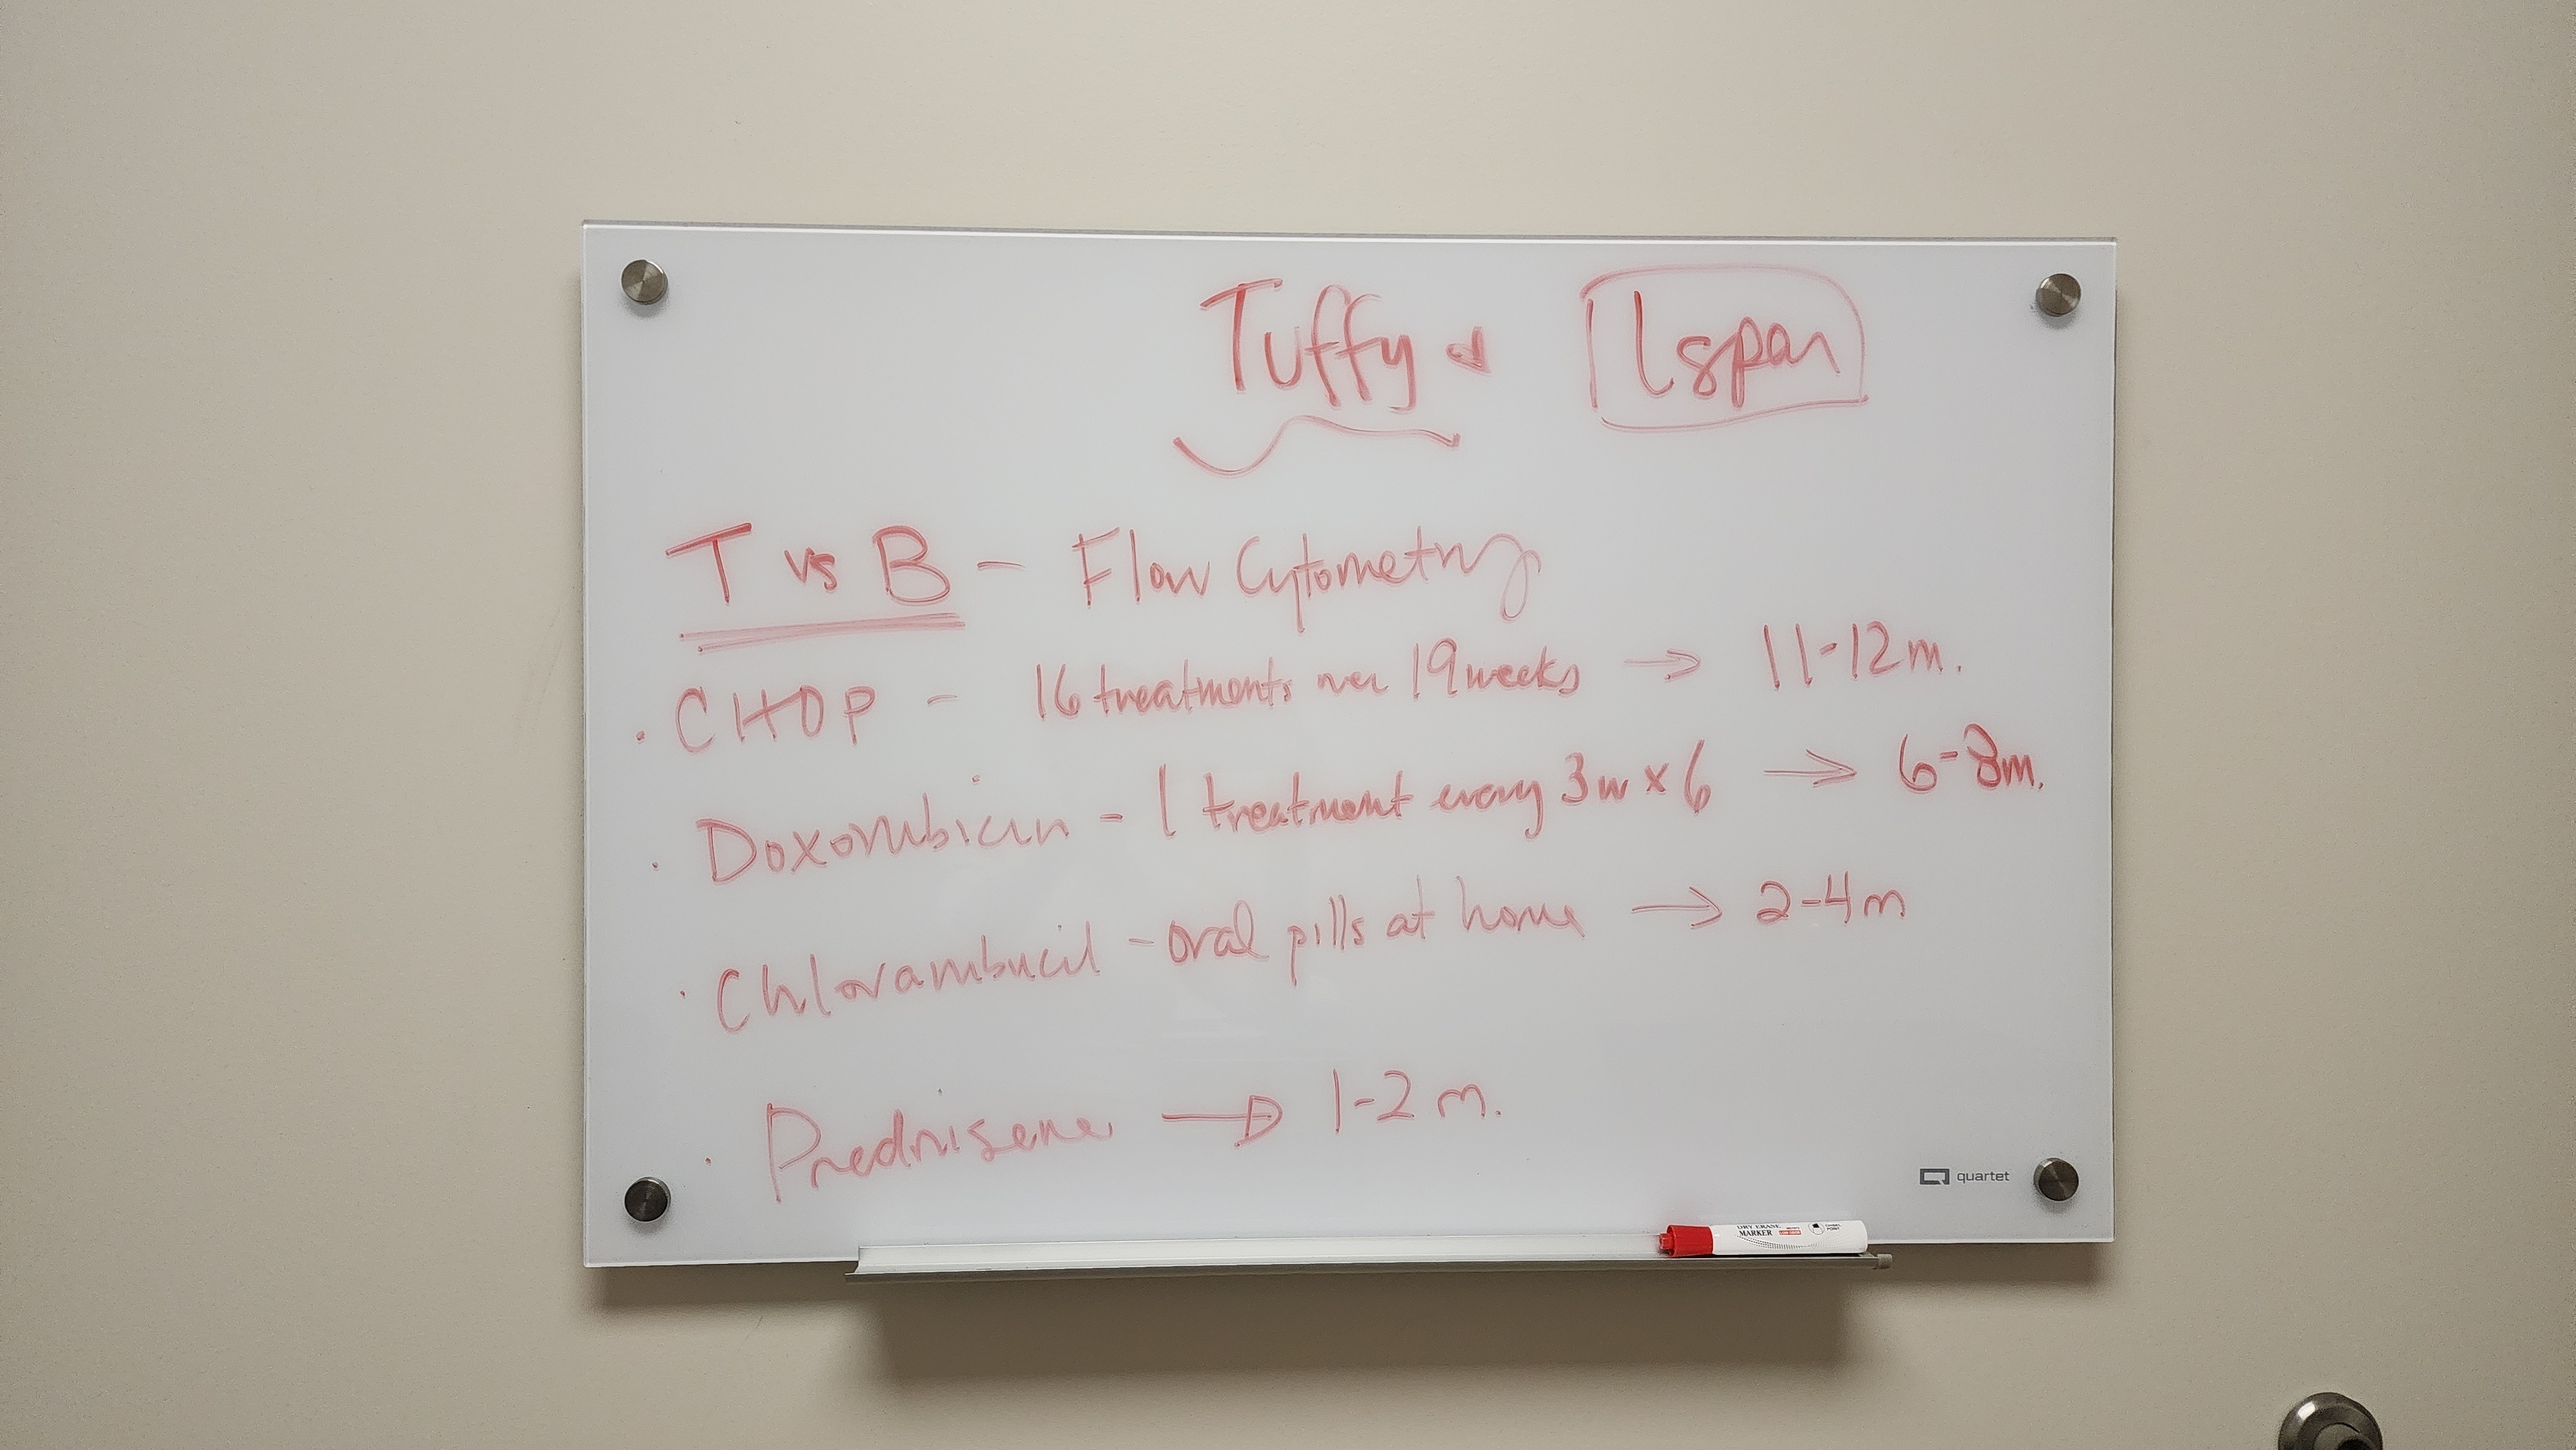 Tuffy Lspar
T vs B - Flow Cytometry
· CHOP - 16 treatments over 19 weeks → 11-12m.
· Doxorubicin - 1 treatment every 3w x 6 → 6-8m.
· Chlorambucil - oral pills at home → 2-4m
· Prednisone → 1-2 m.
quartet
DRY ERASE
MARKER